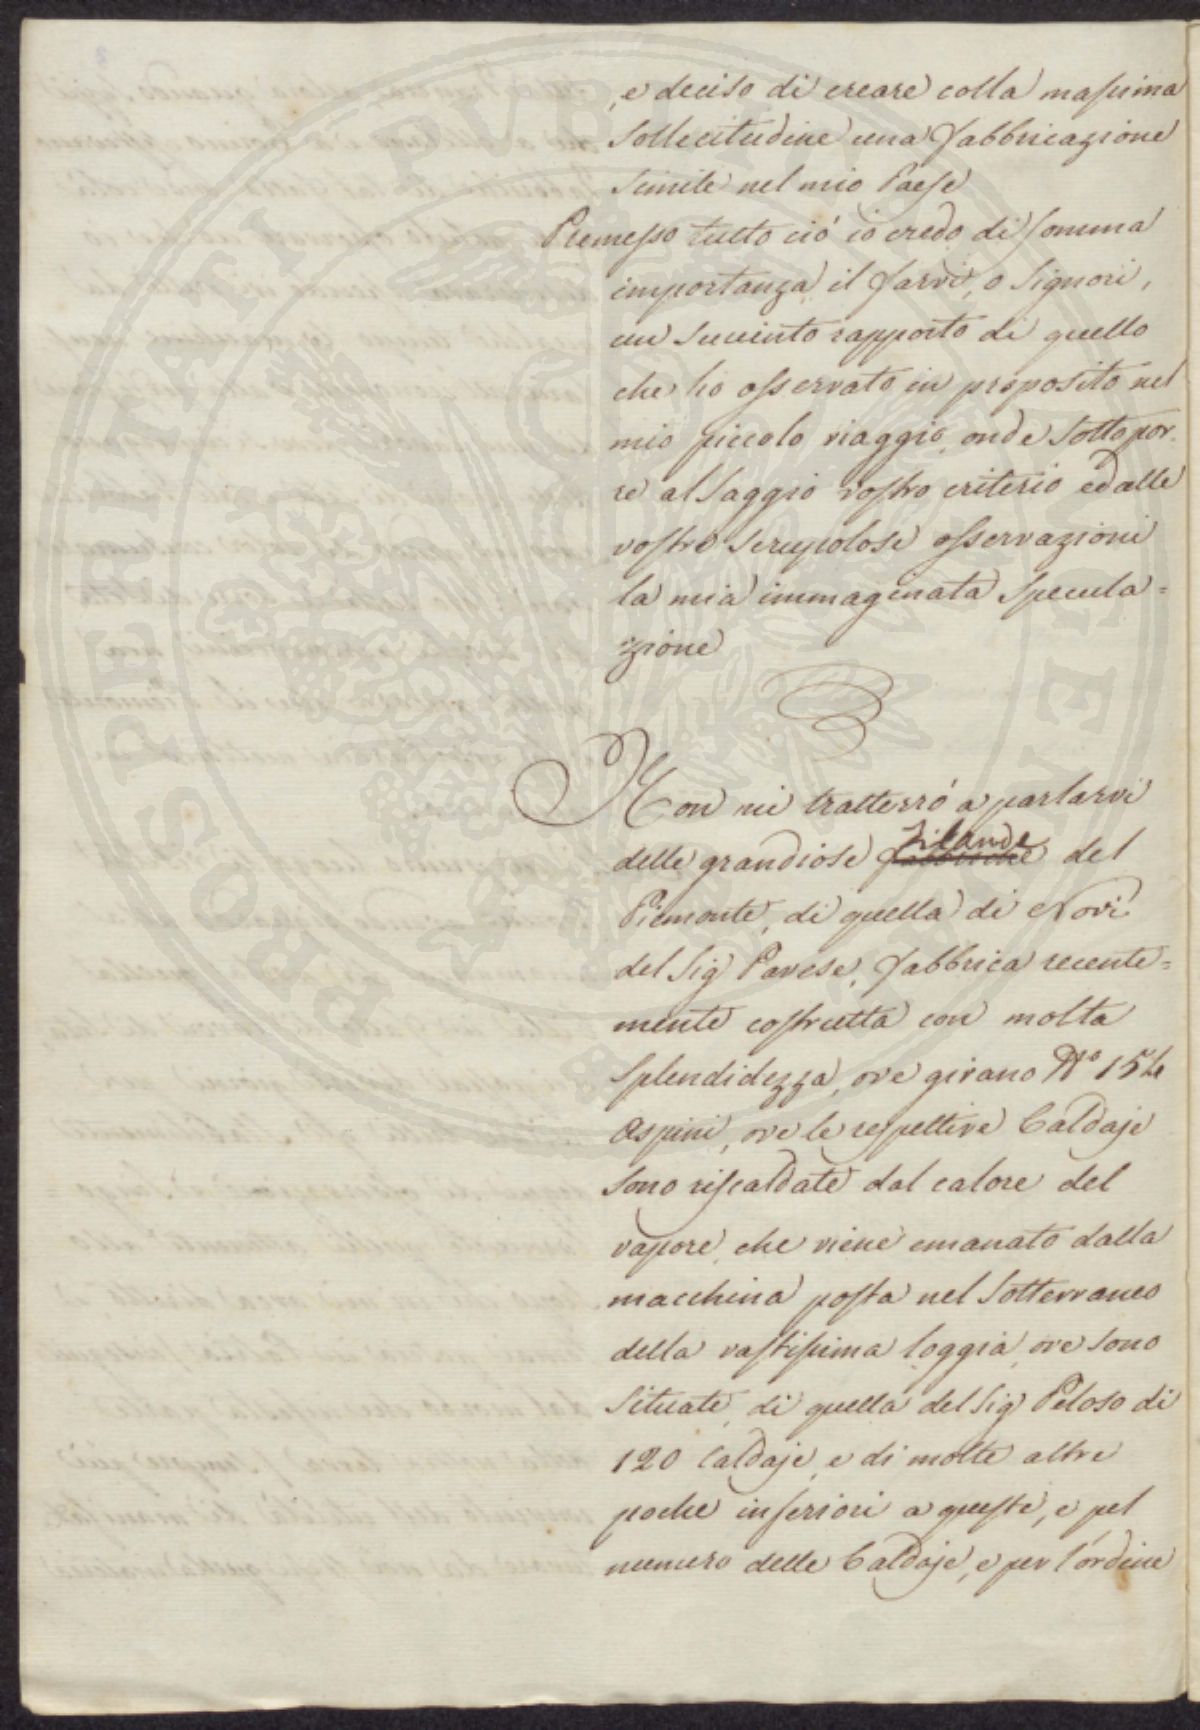 , e deciso di creare colla massima
sollecitudine una fabbricazione
simile nel mio Paese
Premesso tutto ciò io credo di somma
importanza il farvi, o Signori,
un succinto rapporto di quello
che ho osservato in proposito nel
mio piccolo viaggio, onde sottopor-
re al saggio vostro criterio ed alle
vostre scrupolose osservazioni
la mia immaginata specula=
zione
Non mi tratterrò a parlarvi
delle grandiose fabbriche Filande del
Piemonte, di quella di Novi
del Sig Pavese, fabbrica recente=
mente costrutta con molta
splendidezza, ove girano N.° 154
Aspini, ove le respettive Caldaje
sono riscaldate dal calore del
vapore, che viene emanato dalla
macchina posta nel sotterraneo
della vastissima loggia, ove sono
situate, di quella del Sig Peloso di
120 Caldaje, e di molte altre
poche inferiori a queste, e pel
numero delle Caldaje, e per l'ordine
PROSPERITATI PUBLICAE AUGENDAE